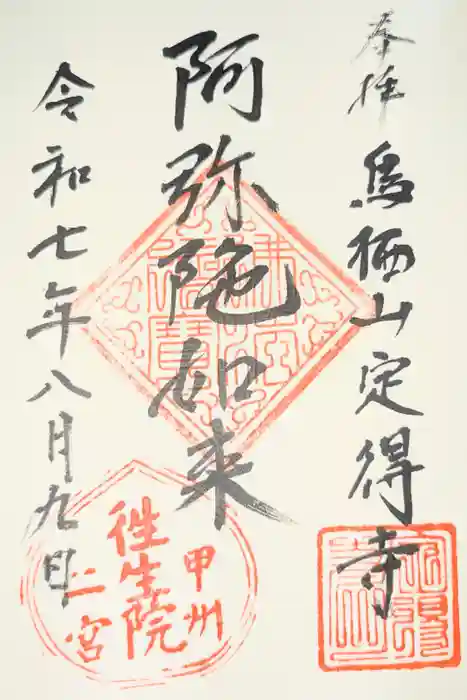 奉拝
鳥栖山定得寺
阿弥陀如来
令和七年八月九日
佛法僧寳
甲州
往生院
二宮